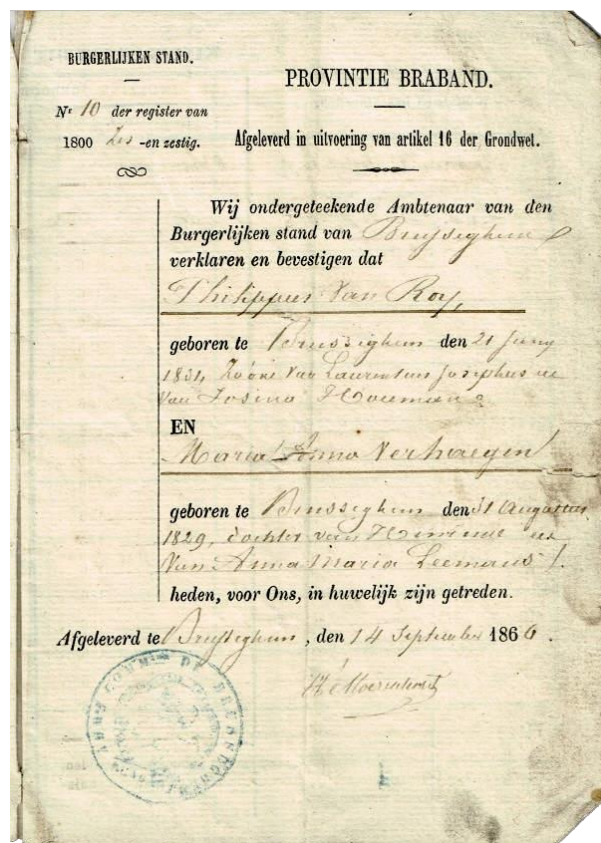 BURGERLIJKEN STAND.
Nr 10 der register van
1800 Zes -en zestig.
PROVINTIE BRABAND.
Afgeleverd in uitvoering van artikel 16 der Grondwet.
Wij ondergeteekende Ambtenaar van den
Burgerlijken stand van Brusseghem
verklaren en bevestigen dat
Philippus Van Roy,
geboren te Brusseghem den 21 Juny
1831, Zoone van Laurentius Josephus en
van Josina
EN
Maria Anna Verhaegen
geboren te Brusseghem den 31 Augustus
1829, dochter van en
Van Anna Maria Leemans
heden, voor Ons, in huwelijk zijn getreden.
Afgeleverd te Brusseghem, den 14 September 1866.